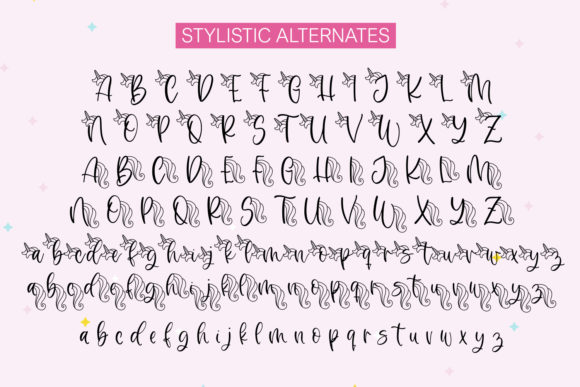 STYLISTIC ALTERNATES
A B C D E F G H I J K L M
N O P Q R S T U V W X Y Z
A B C D E F G H I J K L M
N O P Q R S T U V W X Y Z
a b c d e f g h i j k l m n o p q r s t u v w x y z
a b c d e f g h i j k l m n o p q r s t u v w x y z
a b c d e f g h i j k l m n o p q r s t u v w x y z